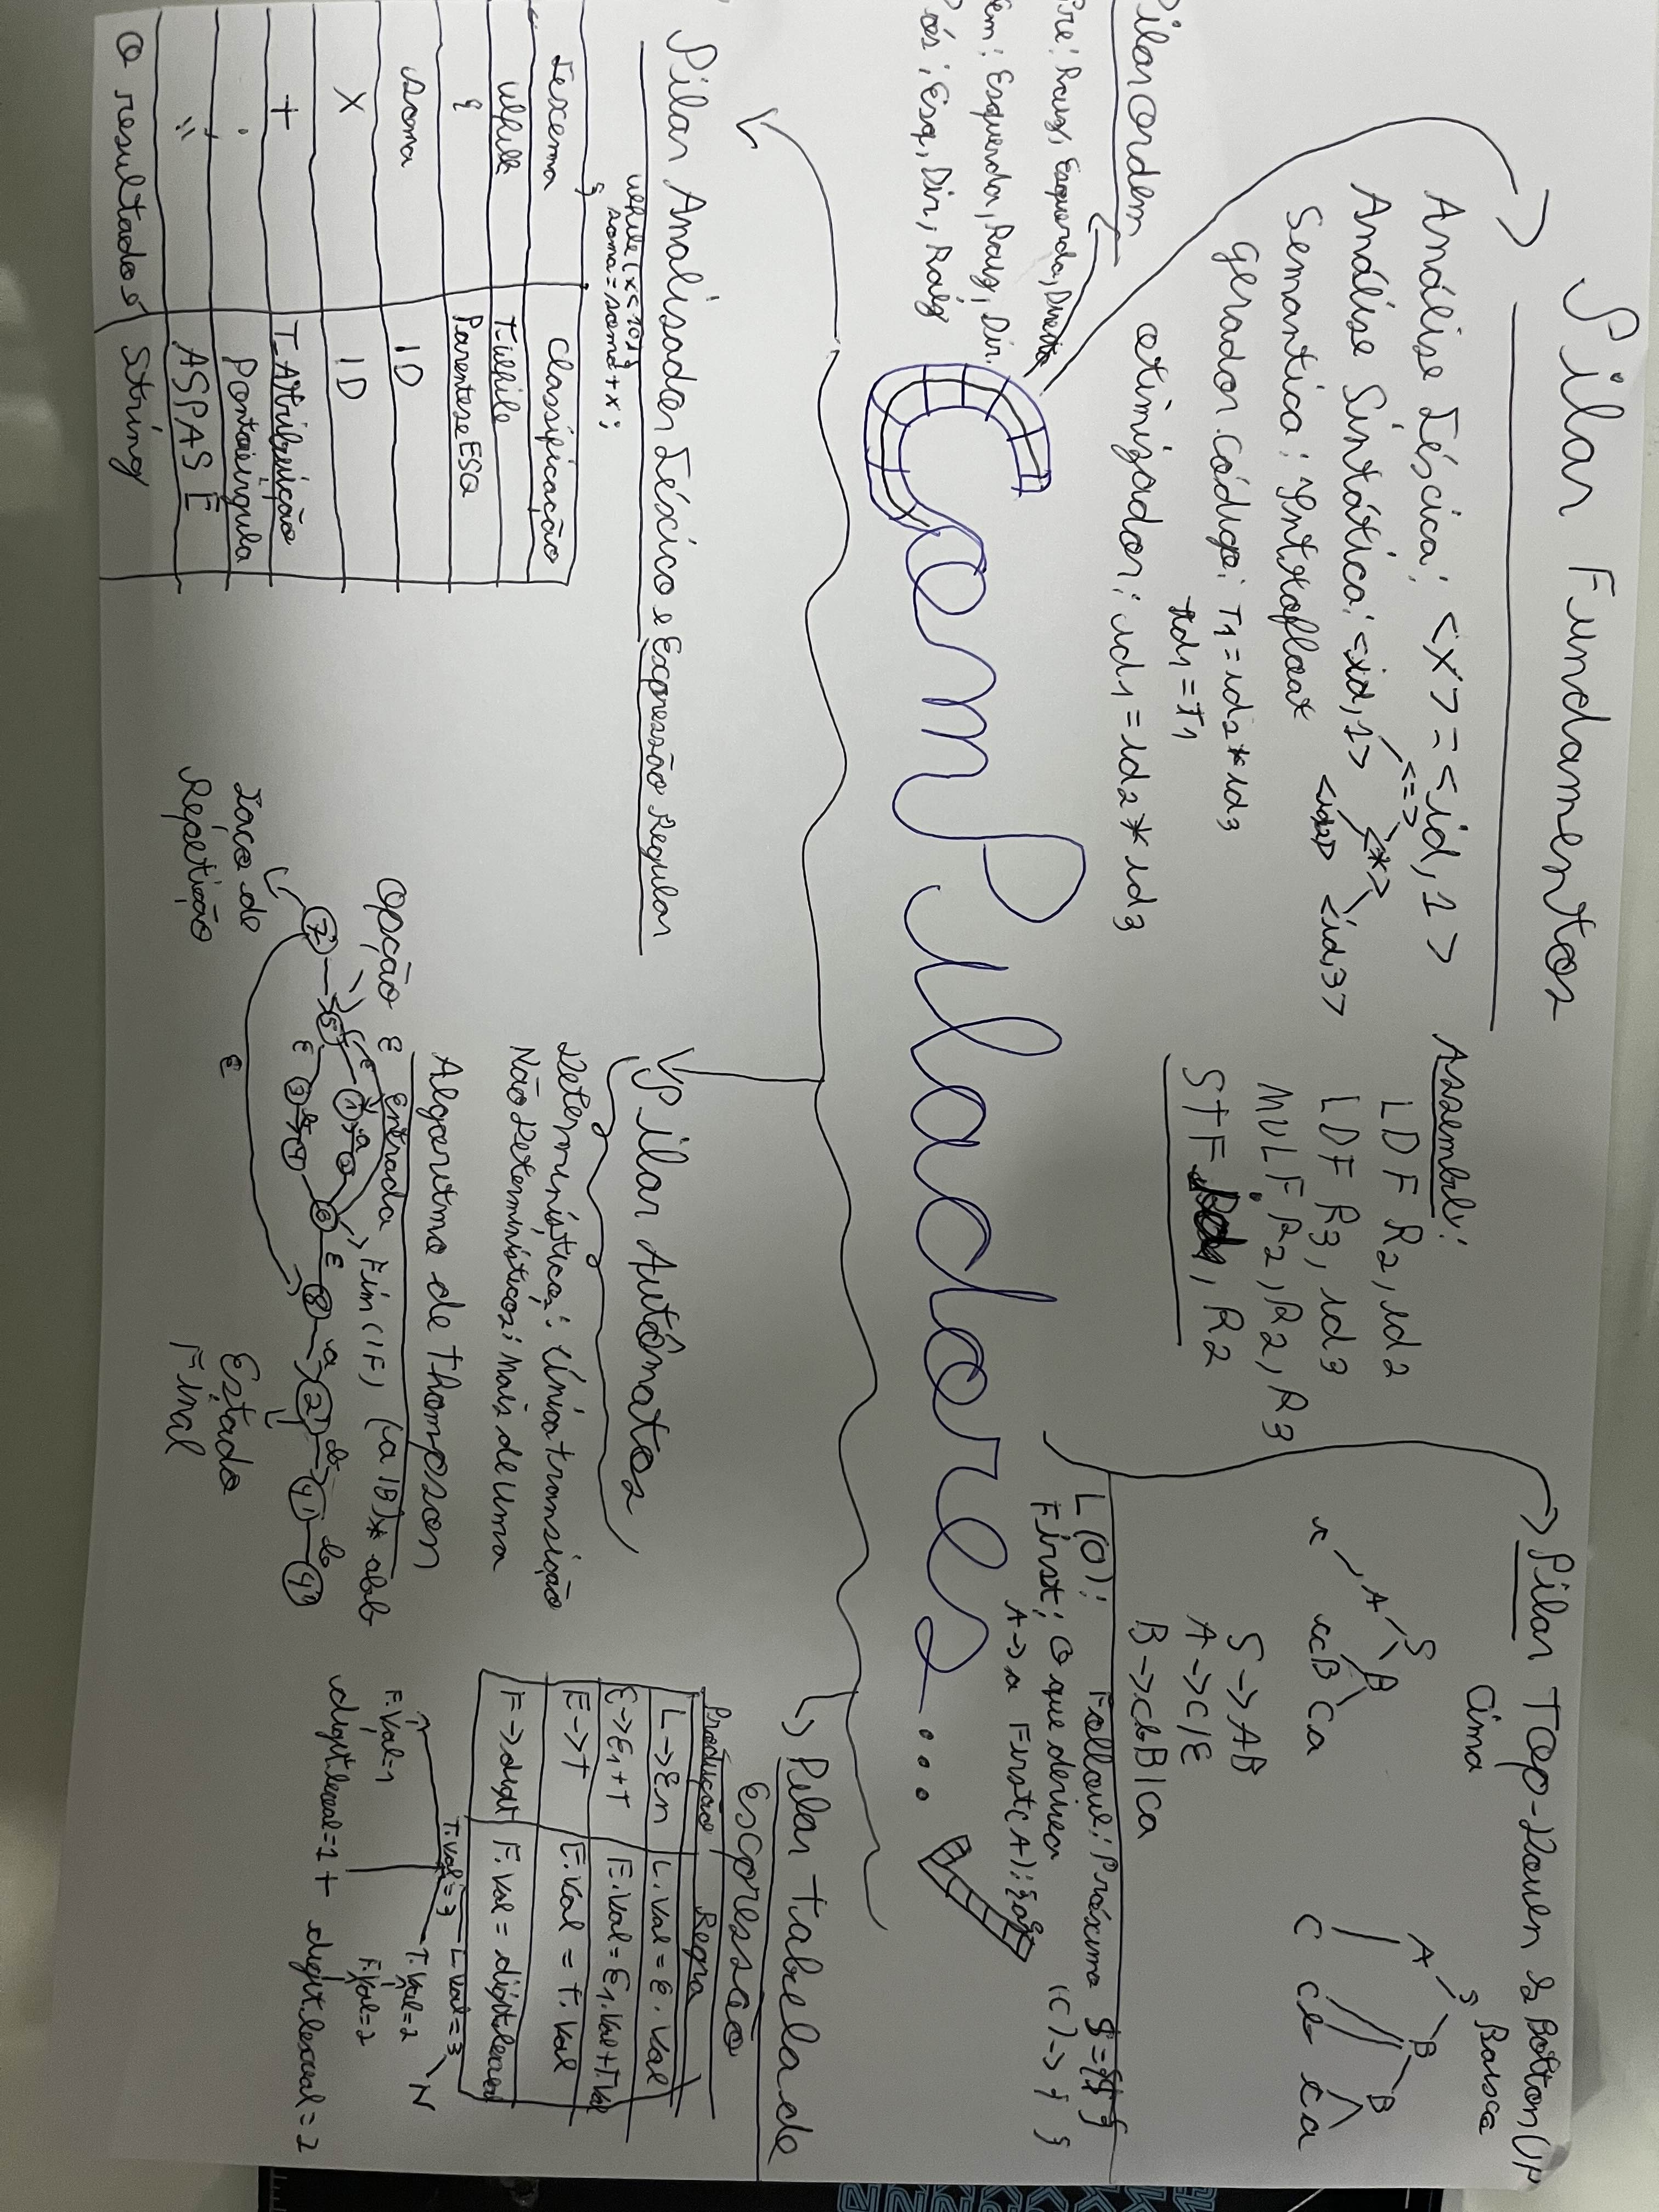 Pilar Fundamentos
Análise Léscica: <X> = <id, 1>
Análise Sintática: <id, 1> <=> <*> <id2> <id,3>
Semantica: Inttofloat
Gerador Código: T1 = id2 * id3
id1 = T1
otimizador: id1 = id2 * id3
Assembly:
LDF R2, id2
LDF R3, id3
MULF R2, R2, R3
STF id1, R2
Pilar Top-Down & Botton UP
Cima
Baixa
S
A B
c ccB Ca
S
A B
B
C cb ca
S -> AB
A -> C/E
B -> cbB|Ca
L(0):
Follow: Próximo $ = {$}
First: O que deriva
(C) -> { }
A -> a First(A): {a}
Pilar ordem
Pre: Raiz, Esquerda, Direita
em: Esquerda, Raiz, Dir.
Pós: Esq, Dir, Raiz
ComPiladores...
Pilar Analisador Léxico e Expressão Regular
while (x<10){
soma = soma + x;
}
Lexema Classificação
while T_while
{ Parentese ESQ
soma ID
X ID
+ T_Atribuição
; Pontovirgula
" ASPAS E
O resultado é String
Pilar Autômatos
Determinísticos: Única transição
Não Determinísticos: Mais de uma
Algoritmo de Thompson
Opção ε Entrada Fim (IF) (a|B)* abb
7 5 ε 1 a 2 6 ε 8 a 2' b 4' b 4''
ε 3 b 4
ε
Laço de
Repetição
Estado
Final
Pilar Tabela de
Escpressão
Produção Regra
L -> En L.Val = E.Val
E -> E1 + T E.Val = E1.Val + T.Val
E -> T E.Val = T.Val
F -> digit F.Val = digit.lexval
T.Val = 3 L.Val = 3
F.Val = 1 T.Val = 2 N
F.Val = 2
digit.lexval = 1 + digit.lexval = 2